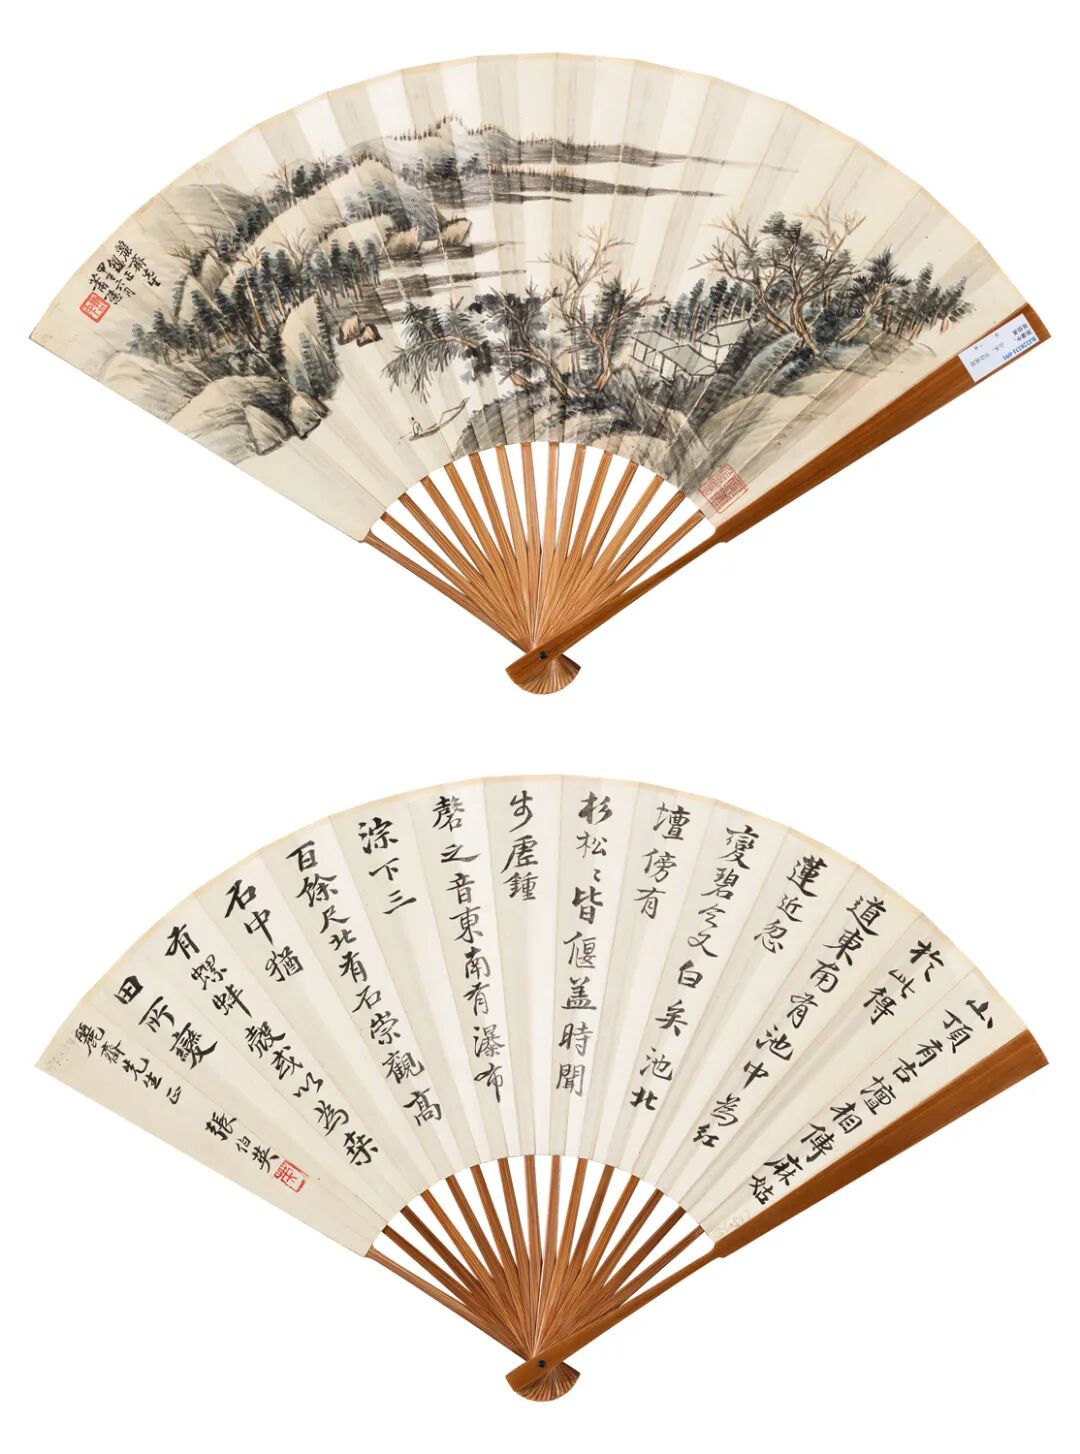 麗齋先生
山頂有古壇相傳麻姑
於此得
道東南有池中為紅
蓮近忽
變碧今又白矣池北
壇傍有
杉松〻皆偃蓋時聞
步虛鍾
磬之音東南有瀑布
淙下三
百餘尺北有石崇觀高
石中猶
有螺蚌殼或以為桑
田所變
麗齋先生正
張伯英